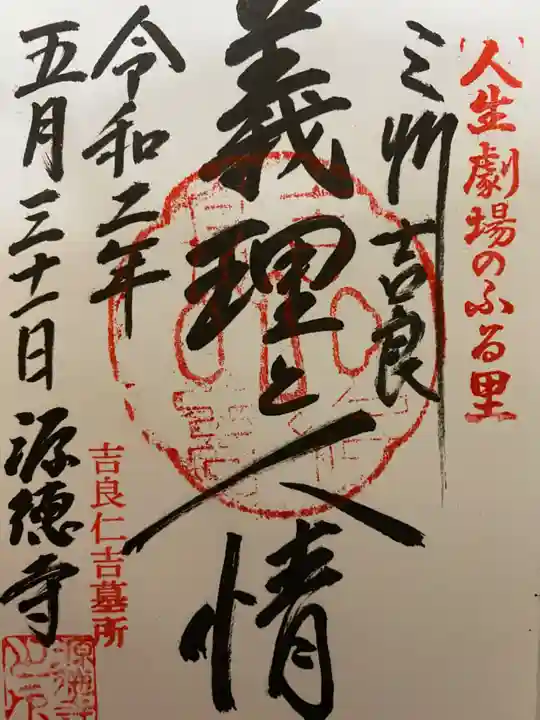 人生劇場のふる里
三州吉良
義理と人情
令和二年
五月三十一日 源徳寺
吉良仁吉墓所